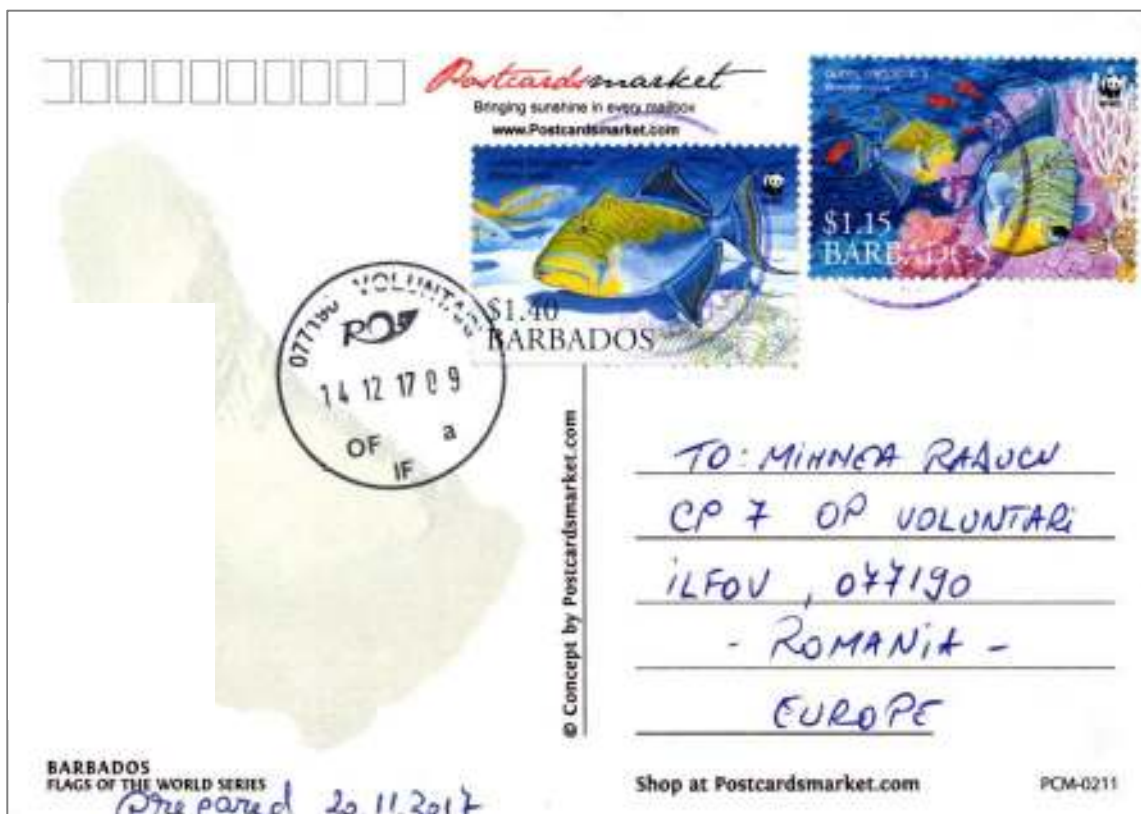 Postcardsmarket
Bringing sunshine in every mailbox
www.Postcardsmarket.com
$1.15
BARBADOS
$1.40
BARBADOS
VOLUNTARI
14 12 17 09
OF a
IF
© Concept by Postcardsmarket.com
TO: MIHNEA RADUCU
CP 7 OP VOLUNTARi
iLFOV, 077190
- ROMANiA -
EUROPE
BARBADOS
FLAGS OF THE WORLD SERIES
Prepared 20.11.2017
Shop at Postcardsmarket.com
PCM-0211